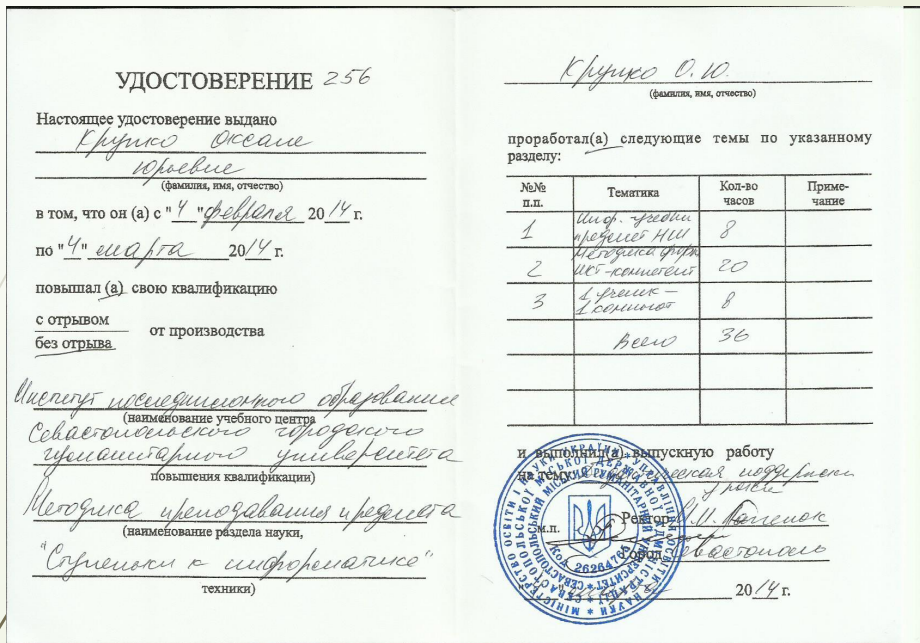 УДОСТОВЕРЕНИЕ 256
Настоящее удостоверение выдано
Крупко Оксане
Юрьевне
(фамилия, имя, отчество)
в том, что он (а) с "4" февраля 2014 г.
по "4" марта 2014 г.
повышал (а) свою квалификацию
с отрывом
без отрыва
от производства
Институт последипломного образования
(наименование учебного центра
Севастопольского городского
гуманитарного университета
повышения квалификации)
Методика преподавания предмета
(наименование раздела науки,
"Ступеньки к информатике"
техники)
Крупко О. Ю.
(фамилия, имя, отчество)
проработал(а) следующие темы по указанному
разделу:
№№ п.п. Тематика Кол-во часов Приме-чание
1 Инф. - учебн предмет НШ 8
2 Методика форм ИКТ-компетент 20
3 1 ученик – 1 компьют 8
Всего 36
и выполнил(а) выпускную работу
на тему поддержка
урока
м.п. Ректор
Город Севастополь
2014 г.
МІНІСТЕРСТВО ОСВІТИ І НАУКИ УКРАЇНИ
СЕВАСТОПОЛЬСЬКИЙ МІСЬКИЙ ГУМАНІТАРНИЙ УНІВЕРСИТЕТ